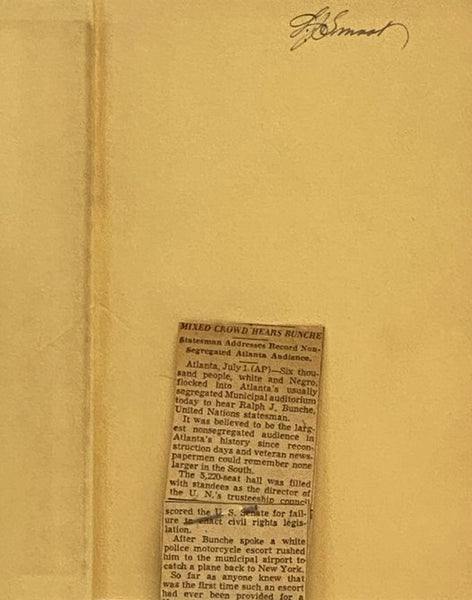 MIXED CROWD HEARS BUNCHE
Statesman Addresses Record Non-
Segregated Atlanta Audience.
Atlanta, July 1.(AP)—Six thou-
sand people, white and Negro,
flocked into Atlanta's usually
segregated Municipal auditorium
today to hear Ralph J. Bunche,
United Nations statesman.
It was believed to be the larg-
est nonsegregated audience in
Atlanta's history since recon-
struction days and veteran news-
papermen could remember none
larger in the South.
The 5,220-seat hall was filled
with standees as the director of
the U. N.'s trusteeship council
scored the U. S. Senate for fail-
ure to enact civil rights legis-
lation.
After Bunche spoke a white
police motorcycle escort rushed
him to the municipal airport to
catch a plane back to New York.
So far as anyone knew that
was the first time such an escort
had ever been provided for a